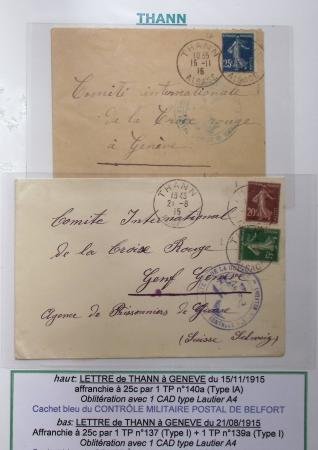 THANN
THANN
15-11
15
ALSACE
25c
Comité internationale
de la Croix rouge
à Genève
THANN
21-8
15
20c
Comite International
de la Croix Rouge
Genf Genève
Agence de Prisonniers de Guerre
(Suisse Schweiz)
haut: LETTRE de THANN à GENEVE du 15/11/1915
affranchie à 25c par 1 TP n°140a (Type IA)
Oblitération avec 1 CAD type Lautier A4
Cachet bleu du CONTRÔLE MILITAIRE POSTAL DE BELFORT
bas: LETTRE de THANN à GENEVE du 21/08/1915
Affranchie à 25c par 1 TP n°137 (Type I) + 1 TP n°139a (Type I)
Oblitération avec 1 CAD type Lautier A4